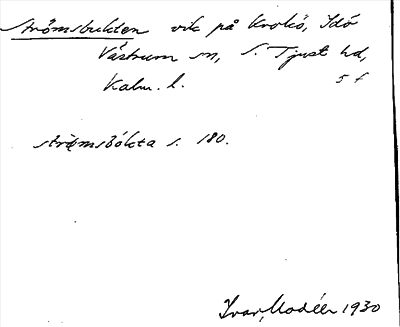 Strömsbukten vik på Krokö, Idö
Västrum sn, S. Tjust hd,
Kalm. l. 5 f
strömsbókta s. 180.
Ivar Modéer 1930